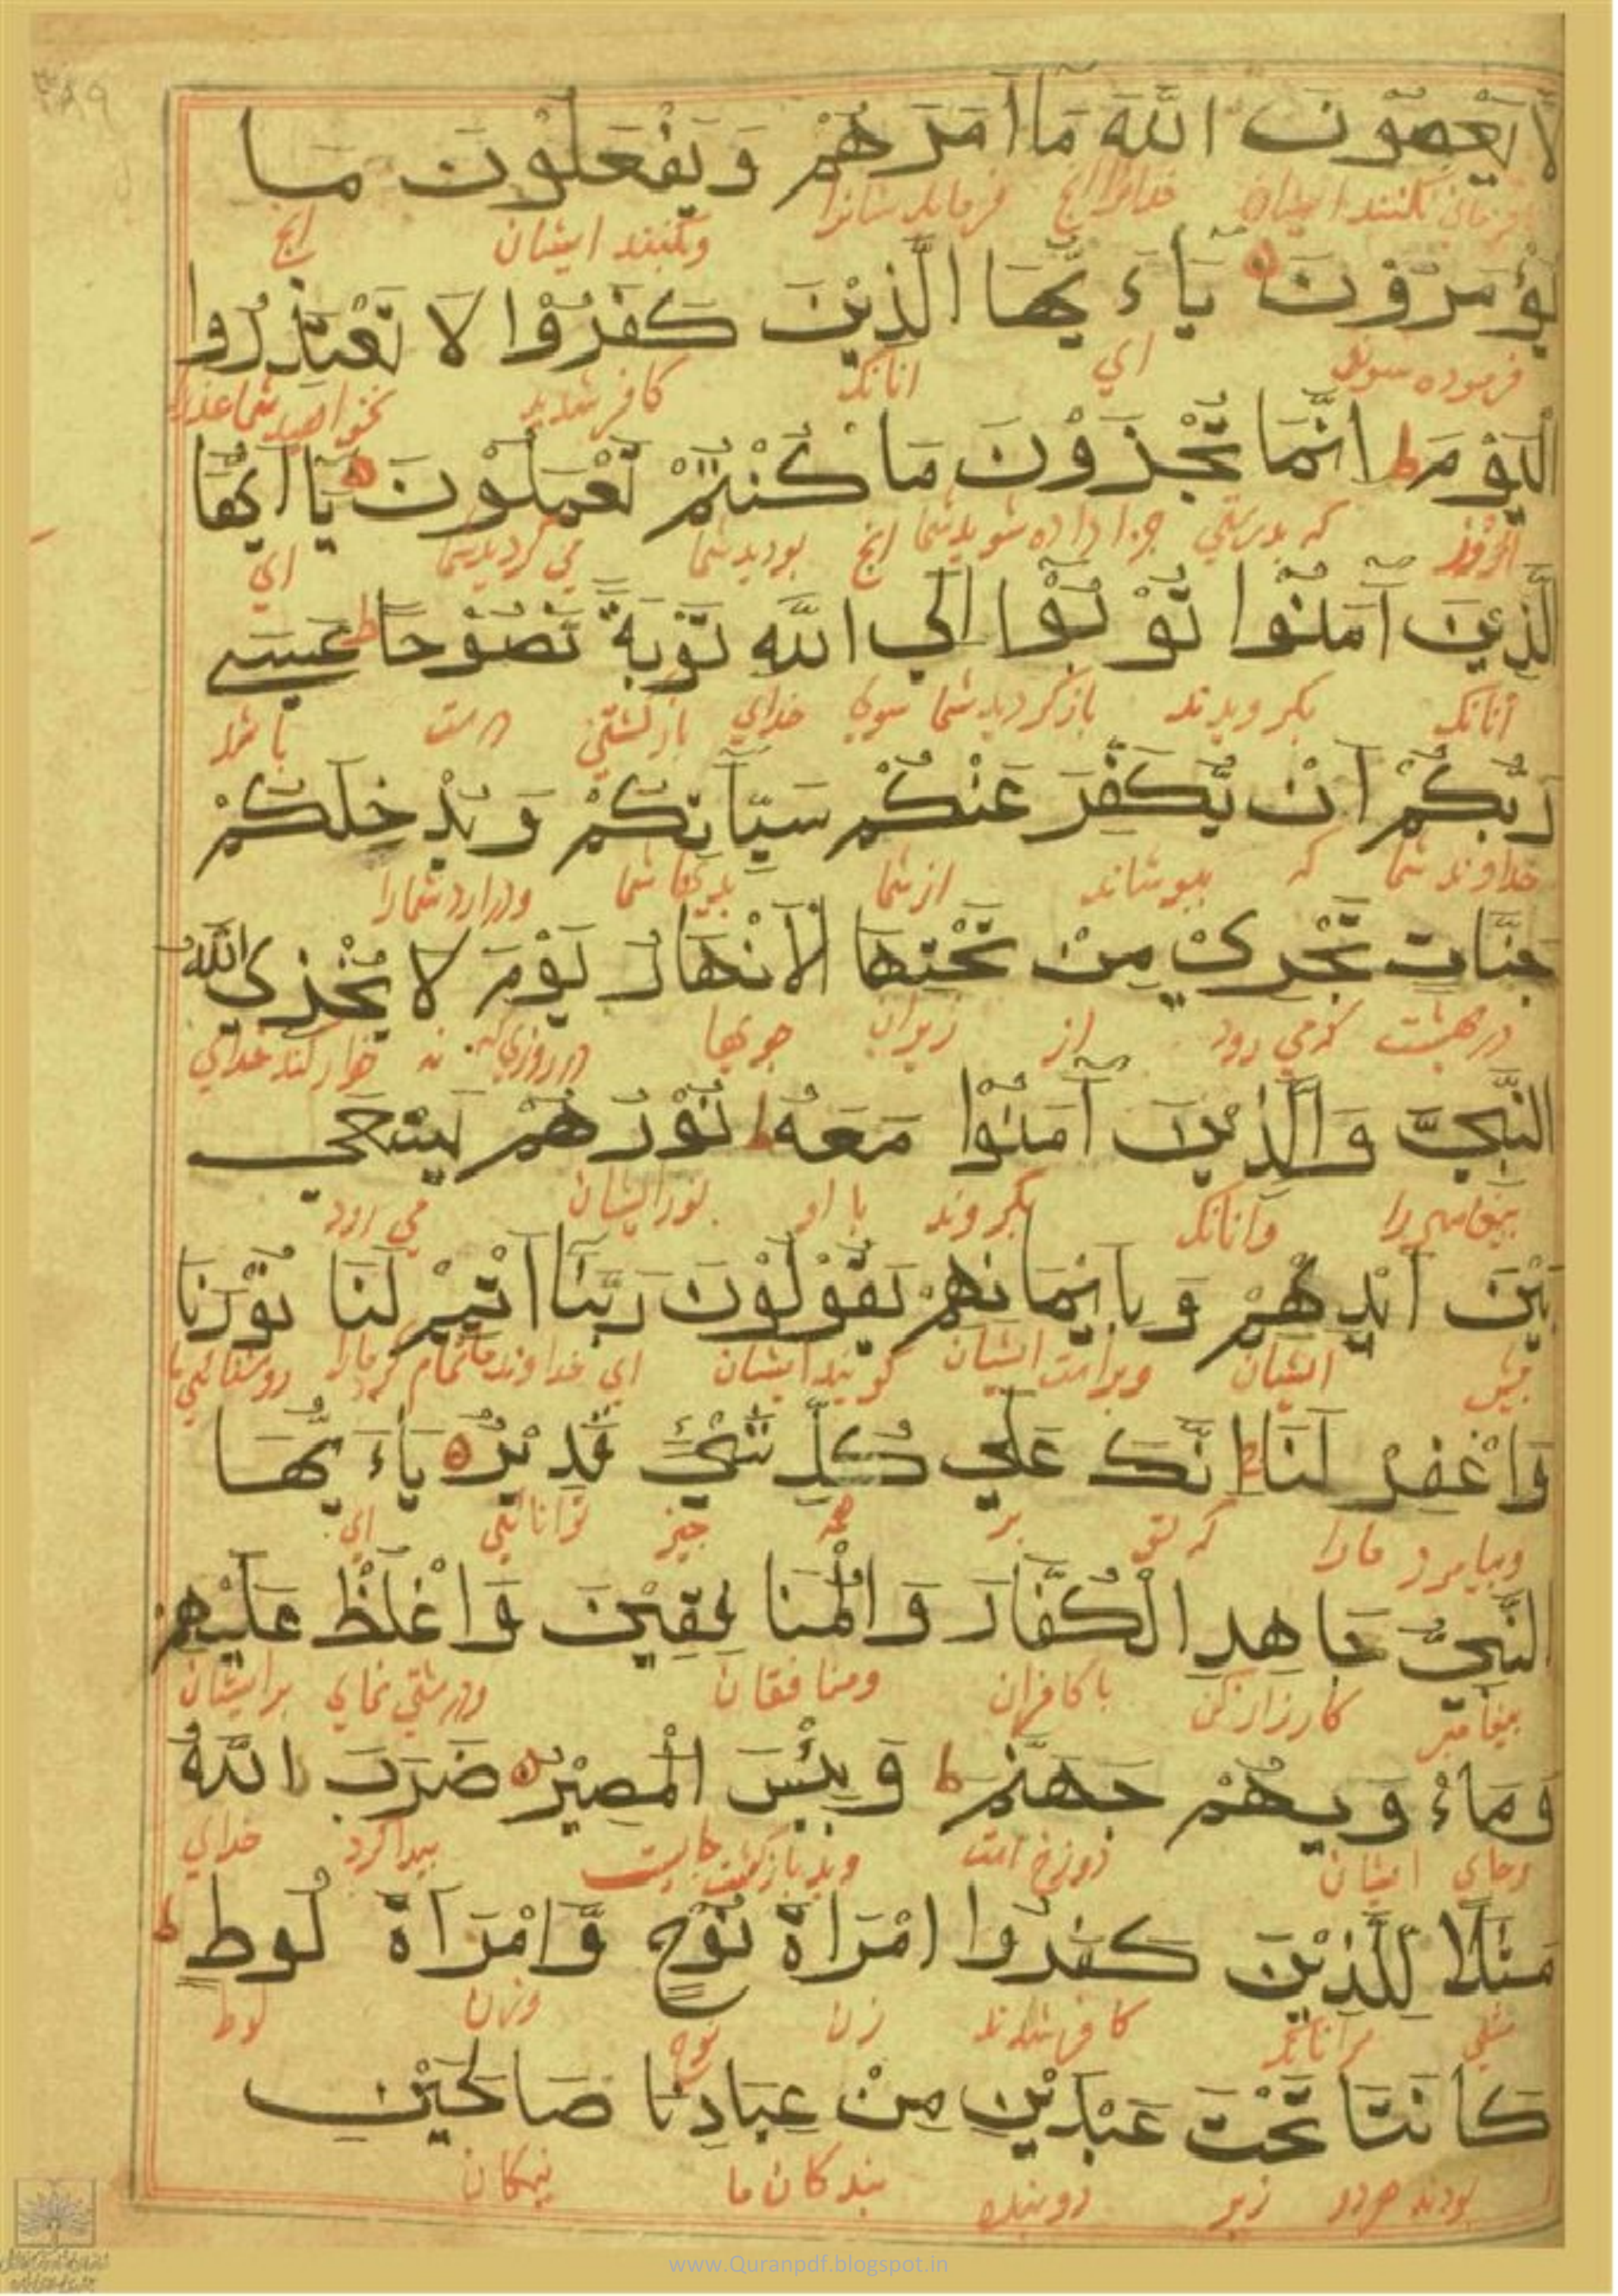 ۳۸۹
لَا يَعْصُوْنَ اللّٰهَ مَا اَمَرَهُمْ وَيَفْعَلُوْنَ مَا
کنند ایشان خدایرا انچ فرماید شانرا وکنند ایشان انچ
يُؤْمَرُوْنَ يَاءَيُّهَا الَّذِيْنَ كَفَرُوْا لَا تَعْتَذِرُوا
فرموده شوند ای انانک کافر شدید نخواهید شما عذر
الْيَوْمَ ط اِنَّمَا تُجْزَوْنَ مَا كُنْتُمْ تَعْمَلُوْنَ يَا اَيُّهَا
امروز که بدرستی جزا داده شوید شما انچ بودید شما می کردید شما ای
الَّذِيْنَ آمَنُوا تُوْبُوْا اِلَي اللّٰهِ تَوْبَةً نَّصُوْحًا ط عَسَي
آنانک بکرویدند بازکردید شما سوی خدای بازکشتنی درست باشد
رَبُّكُمْ اَنْ يُّكَفِّرَ عَنْكُمْ سَيِّآتِكُمْ وَيُدْخِلَكُمْ
خداوند شما که بپوشاند از شما بدیها شما ودرارد شمارا
جَنَّاتٍ تَجْرِيْ مِنْ تَحْتِهَا الْاَنْهَارُ يَوْمَ لَا يُخْزِي اللّٰهُ
در بهشت که می رود از زیران جویها در روزی که نه خوار کند خدای
النَّبِيَّ وَالَّذِيْنَ آمَنُوْا مَعَهُ ط نُوْرُهُمْ يَسْعَي
پیغامبررا وآنانک بکروند با او نور ایشان می رود
بَيْنَ اَيْدِيْهِمْ وَبِاَيْمَانِهِمْ يَقُوْلُوْنَ رَبَّنَا اَتْمِمْ لَنَا نُوْرَنَا
پیش ایشان وبراست ایشان کویند ایشان ای خداوند ما تمام کن مارا روشنائی ما
وَاغْفِرْ لَنَا ج اِنَّكَ عَلَي كُلِّ شَيْءٍ قَدِيْرٌ يَاءَيُّهَا
وبیامرز مارا که تو بر همه چیز توانائی ای
النَّبِيُّ جَاهِدِ الْكُفَّارَ وَالْمُنَافِقِيْنَ وَاغْلُظْ عَلَيْهِمْ
پیغامبر کارزار کن با کافران ومنافقان ودرشتی نمای بر ایشان
وَمَاءْوَيهُمْ جَهَنَّمُ ط وَبِئْسَ الْمَصِيْرُ ضَرَبَ اللّٰهُ
وجای ایشان دوزخ است وبد بازکشت جایست پیدا کرد خدای
مَثَلًا لِلَّذِيْنَ كَفَرُوا امْرَاَةَ نُوْحٍ وَّامْرَاَةَ لُوطٍ ط
مثلی مر آنانک کافر شدند زن نوح وزن لوط
كَانَتَا تَحْتَ عَبْدَيْنِ مِنْ عِبَادِنَا صَالِحَيْنِ
بودند هردو زیر دو بنده بندکان ما نیکان
www.Quranpdf.blogspot.in